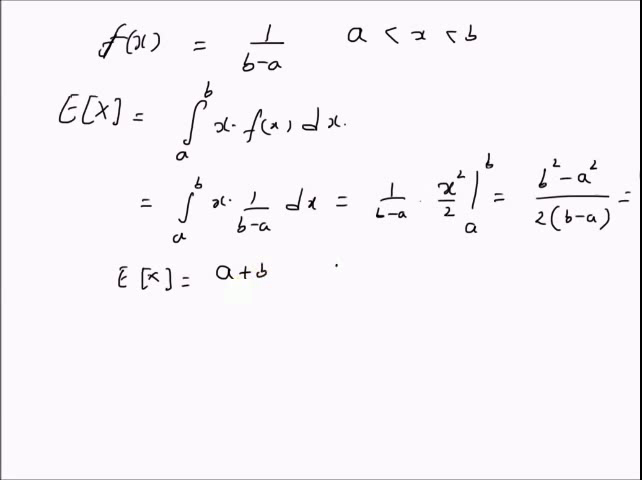 f(x) = 1/(b-a) a < x < b
E[X] = ∫_a^b x · f(x) dx.
= ∫_a^b x · 1/(b-a) dx = 1/(b-a) · x²/2 |_a^b = b² - a² / 2(b-a) =
E[x] = a + b